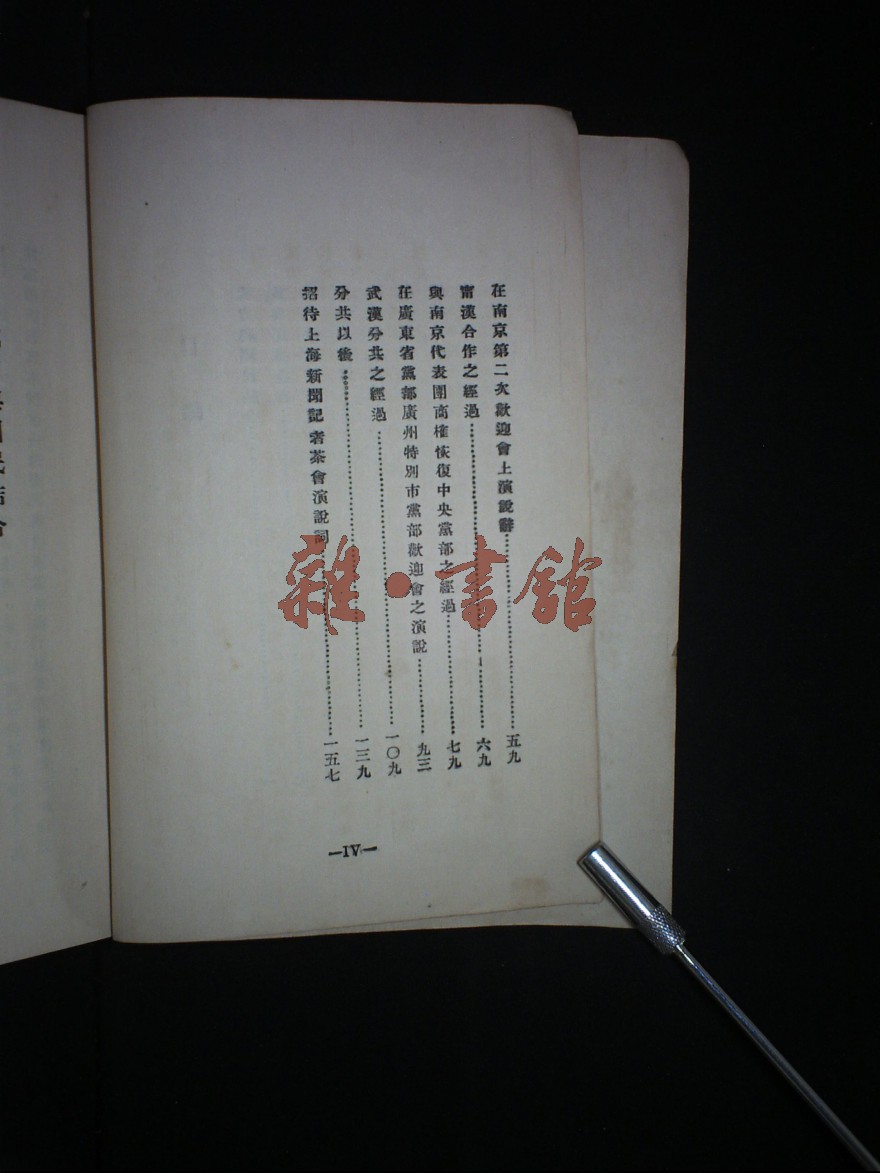 在南京第二次歡迎會上演說辭……五九
甯漢合作之經過……六九
與南京代表團商榷恢復中央黨部之經過……七九
在廣東省黨部廣州特別市黨部歡迎會之演說……九三
武漢分共之經過……一〇九
分共以後……一三九
招待上海新聞記者茶會演說詞……一五七
—IV—
雜·書館